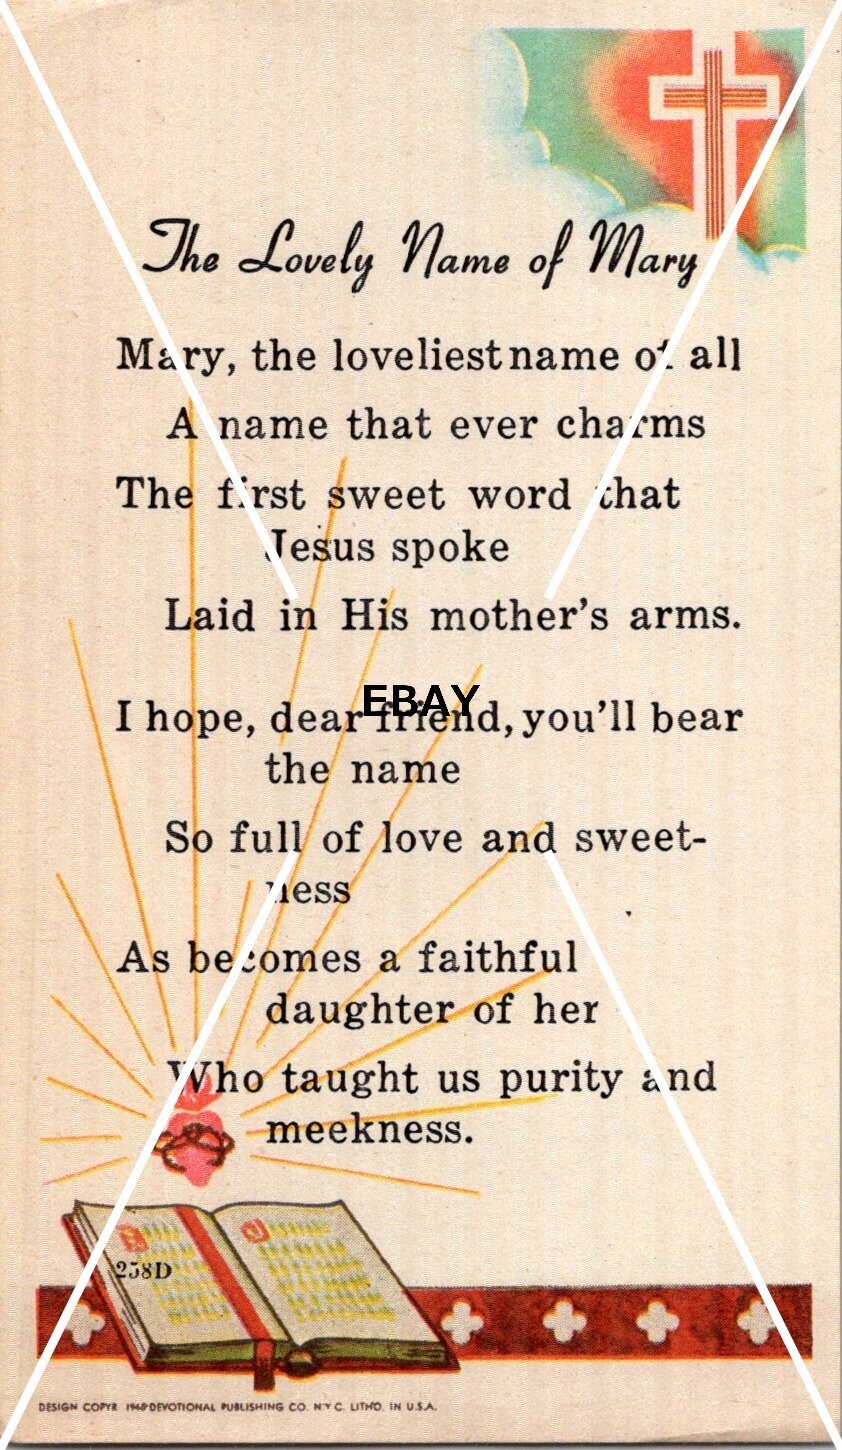 The Lovely Name of Mary
Mary, the loveliest name of all
A name that ever charms
The first sweet word that
Jesus spoke
Laid in His mother's arms.
EBAY
I hope, dear friend, you'll bear
the name
So full of love and sweet-
ness
As becomes a faithful
daughter of her
Who taught us purity and
meekness.
238D
DESIGN COPYR 1948 DEVOTIONAL PUBLISHING CO. N.Y.C. LITHO. IN U.S.A.